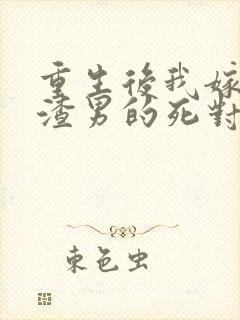 重生後我嫁
渣男的死對
束色虫